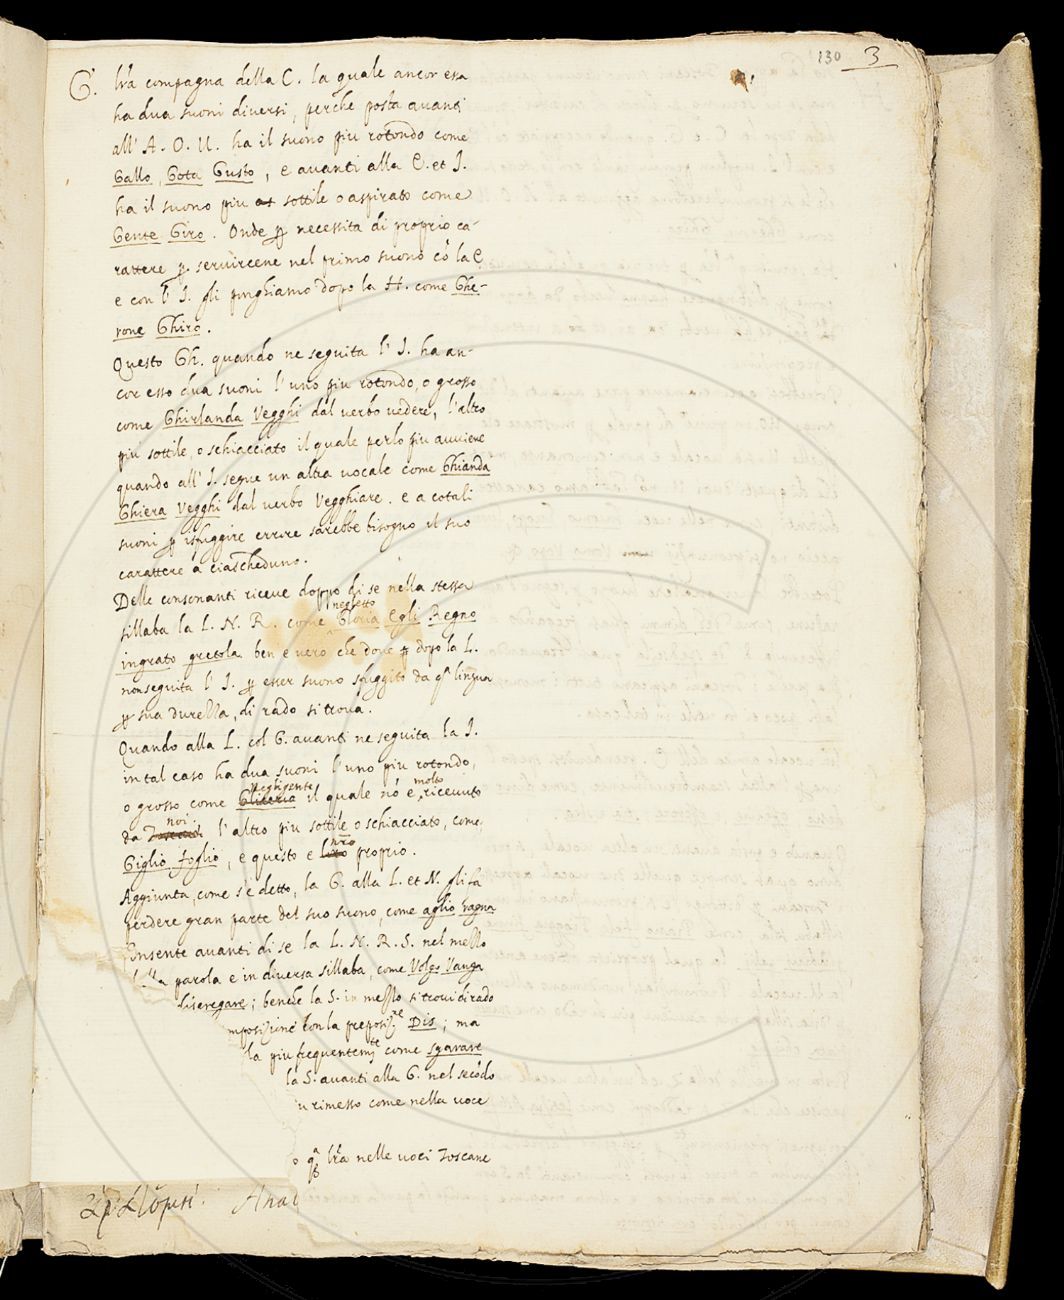 130 3
G. lr̃a compagna della C. la quale ancor essa
ha dua suoni diuersi, perche posta auanti
all' A. O. U. ha il suono piu rotondo come
Gallo, Gota Gusto, e auanti alla E. et I.
ha il suono piu sottile o aspirato come
Gente Giro. Onde ꝑ necessita di proprio ca-
rattere ꝑ seruircene nel primo suono cõ la E
e con l' I. gli ponghiamo dopo la H. come Ghe-
rone Ghiro.
Questo Gh. quando ne seguita l' I. ha an-
cor esso dua suoni l' uno piu rotondo, o grosso
come Ghirlanda Vegghi dal uerbo uedere, l'altro
piu sottile, o schiacciato il quale perlo piu auuiene
quando all' I. segue un altra uocale come Ghianda
Ghiera Vegghi dal uerbo Vegghiare. e a cotali
suoni ꝑ isfuggire errore sarebbe bisogno il suo
carattere a ciascheduno.
Delle consonanti riceue doppo di se nella stessa
sillaba la L. N. R. come Gloria negletto Egli Regno
ingrato gretola ben e uero che doue dopo la L.
non seguita l' I. ꝑ esser suono sfuggito da qª lingua
ꝑ sua durezza, di rado si troua.
Quando alla L. col G. auanti ne seguita la I.
in tal caso ha dua suoni l' uno piu rotondo,
o grosso come Gliteria negligente il quale nõ e molto riceuuto
da Toscani noi. l' altro piu sottile o schiacciato, come,
Giglio foglio, e questo e nr̃o proprio.
Aggiunta, come s'e detto, la G. alla L. et N. gli fa
perdere gran parte del suo suono, come aglio ragna
Consente auanti di se la L. N. R. S. nel mezzo
della parola e in diuersa sillaba, come Volgo Vanga
disgregare; benche la S. in mezzo si troui di rado
mposizione con la preposizne Dis; ma
la piu frequentemte come sgarare
la S. auanti alla G. nel secõdo
u rimesso come nella uoce
o qª lr̃a nelle uoci Toscane